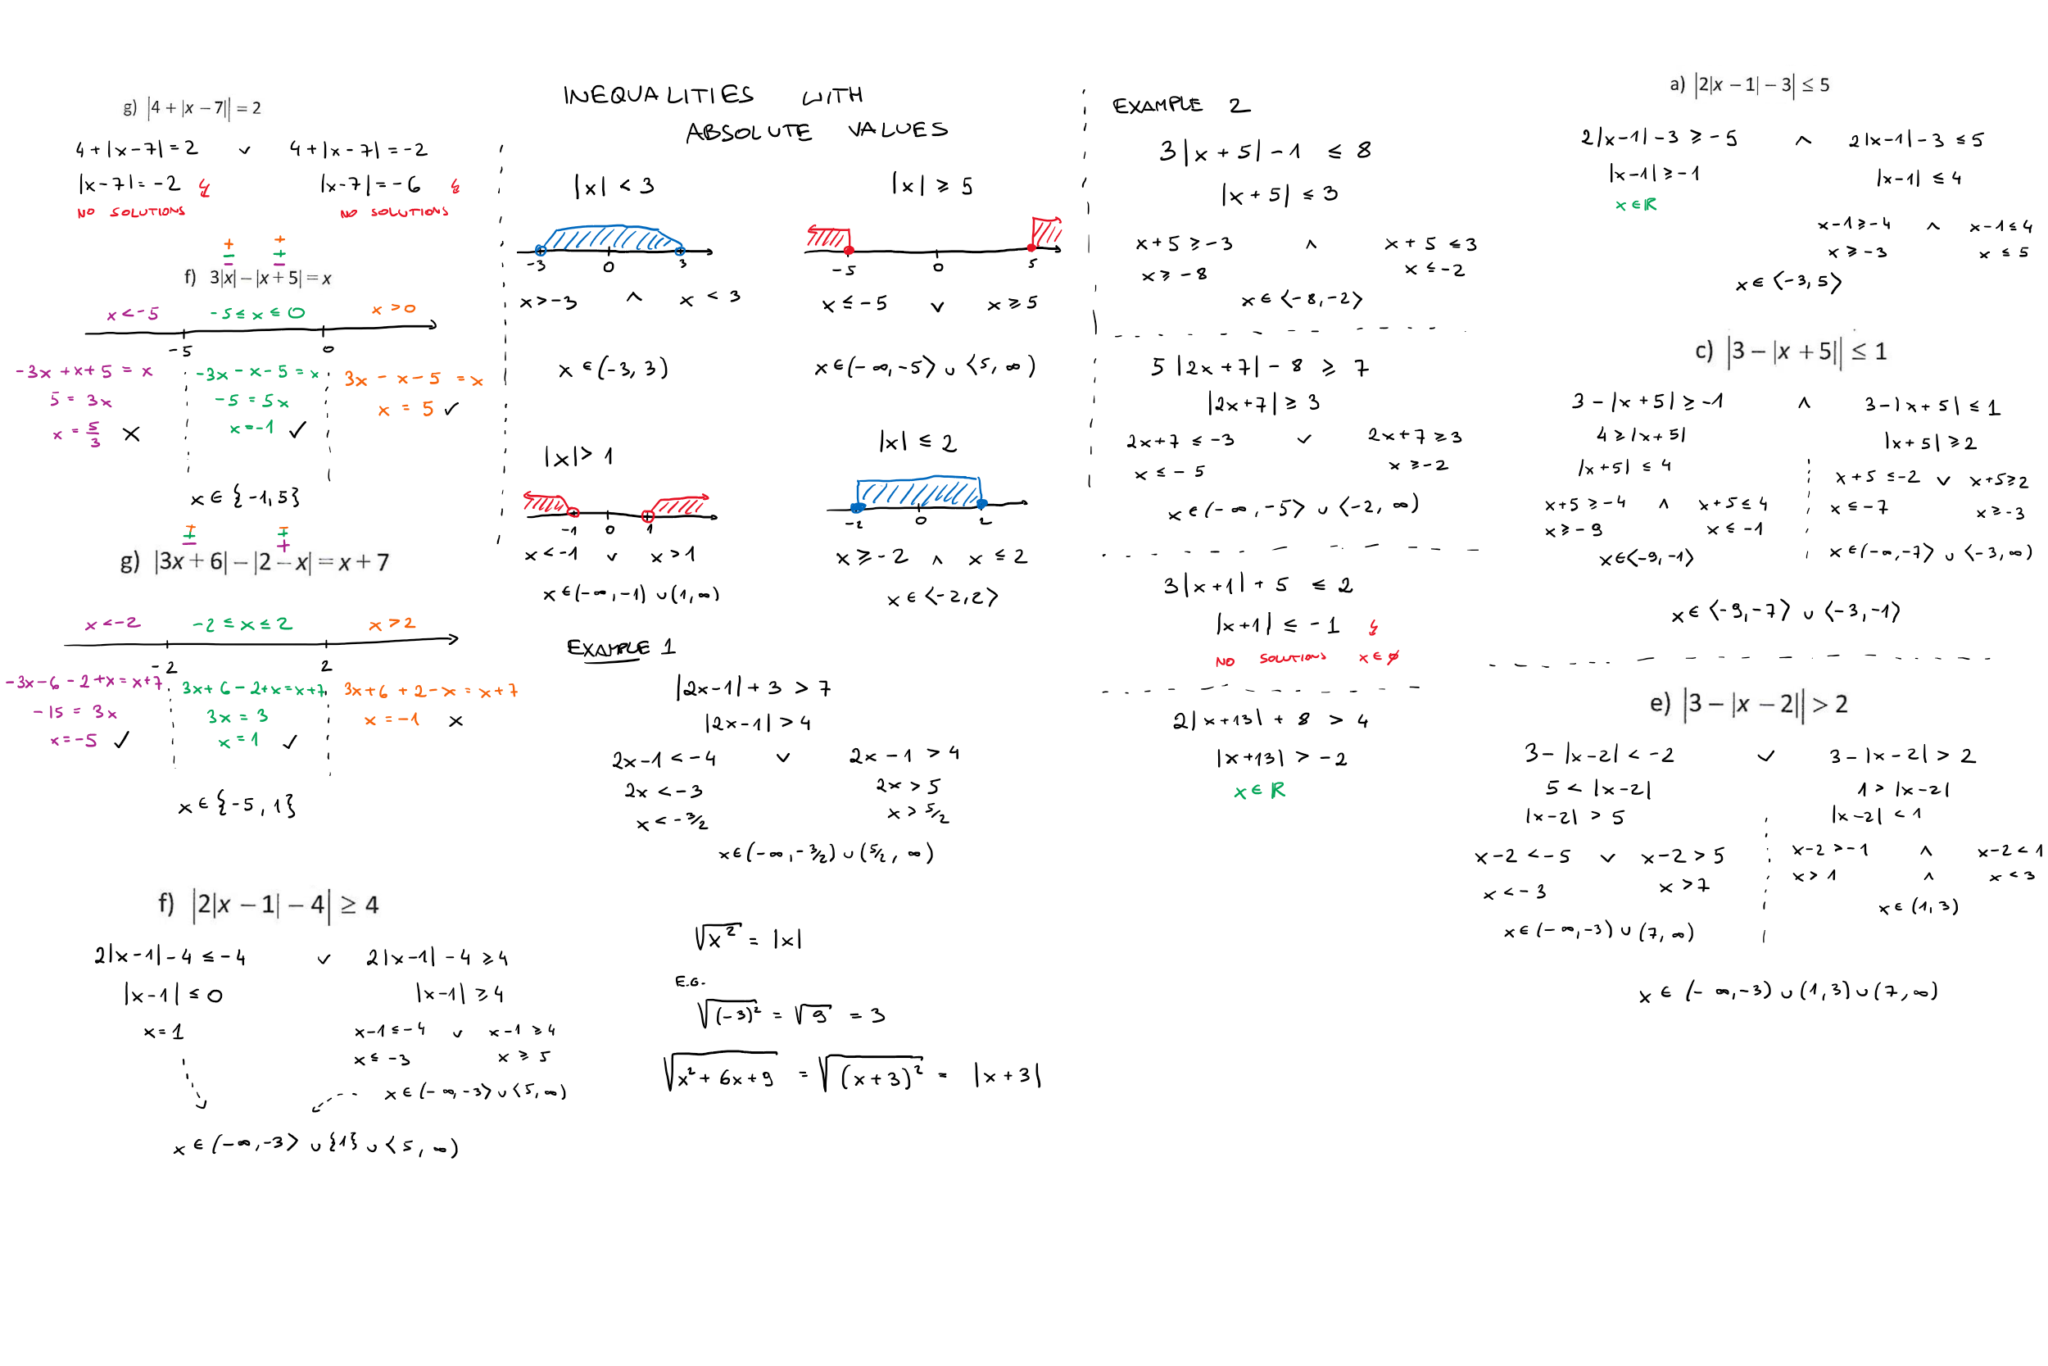 g) |4 + |x − 7|| = 2
4+|x−7|=2 ∨ 4+|x−7|=−2
|x−7|=−2 |x−7|=−6
NO SOLUTIONS NO SOLUTIONS
+ +
− +
− −
f) 3|x| − |x + 5| = x
x<−5 −5≤x≤0 x>0
−5 0
−3x+x+5=x −3x−x−5=x 3x−x−5=x
5=3x −5=5x x=5 ✓
x=5/3 × x=−1 ✓
x∈{−1,5}
+ −
− +
− +
g) |3x + 6| − |2 − x| = x + 7
x<−2 −2≤x≤2 x>2
−2 2
−3x−6−2+x=x+7 3x+6−2+x=x+7 3x+6+2−x=x+7
−15=3x 3x=3 x=−1 ×
x=−5 ✓ x=1 ✓
x∈{−5,1}
f) |2|x − 1| − 4| ≥ 4
2|x−1|−4≤−4 ∨ 2|x−1|−4≥4
|x−1|≤0 |x−1|≥4
x=1 x−1≤−4 ∨ x−1≥4
x≤−3 x≥5
x∈(−∞,−3⟩∪⟨5,∞)
x∈(−∞,−3⟩∪{1}∪⟨5,∞)
INEQUALITIES WITH
ABSOLUTE VALUES
|x|<3 |x|≥5
−3 0 3 −5 0 5
x>−3 ∧ x<3 x≤−5 ∨ x≥5
x∈(−3,3) x∈(−∞,−5⟩∪⟨5,∞)
|x|>1 |x|≤2
−1 0 1 −2 0 2
x<−1 ∨ x>1 x≥−2 ∧ x≤2
x∈(−∞,−1)∪(1,∞) x∈⟨−2,2⟩
EXAMPLE 1
|2x−1|+3>7
|2x−1|>4
2x−1<−4 ∨ 2x−1>4
2x<−3 2x>5
x<−3/2 x>5/2
x∈(−∞,−3/2)∪(5/2,∞)
√x² = |x|
E.G.
√(−3)² = √9 = 3
√x²+6x+9 = √(x+3)² = |x+3|
EXAMPLE 2
3|x+5|−1≤8
|x+5|≤3
x+5≥−3 ∧ x+5≤3
x≥−8 x≤−2
x∈⟨−8,−2⟩
5|2x+7|−8≥7
|2x+7|≥3
2x+7≤−3 ∨ 2x+7≥3
x≤−5 x≥−2
x∈(−∞,−5⟩∪⟨−2,∞)
3|x+1|+5≤2
|x+1|≤−1
NO SOLUTIONS x∈∅
2|x+13|+8>4
|x+13|>−2
x∈ℝ
a) |2|x − 1| − 3| ≤ 5
2|x−1|−3≥−5 ∧ 2|x−1|−3≤5
|x−1|≥−1 |x−1|≤4
x∈ℝ
x−1≥−4 ∧ x−1≤4
x≥−3 x≤5
x∈⟨−3,5⟩
c) |3 − |x + 5|| ≤ 1
3−|x+5|≥−1 ∧ 3−|x+5|≤1
4≥|x+5| |x+5|≥2
|x+5|≤4 x+5≤−2 ∨ x+5≥2
x+5≥−4 ∧ x+5≤4 x≤−7 x≥−3
x≥−9 x≤−1
x∈⟨−9,−1⟩ x∈(−∞,−7⟩∪⟨−3,∞)
x∈⟨−9,−7⟩∪⟨−3,−1⟩
e) |3 − |x − 2|| > 2
3−|x−2|<−2 ∨ 3−|x−2|>2
5<|x−2| 1>|x−2|
|x−2|>5 |x−2|<1
x−2<−5 ∨ x−2>5 x−2>−1 ∧ x−2<1
x<−3 x>7 x>1 ∧ x<3
x∈(−∞,−3)∪(7,∞) x∈(1,3)
x∈(−∞,−3)∪(1,3)∪(7,∞)